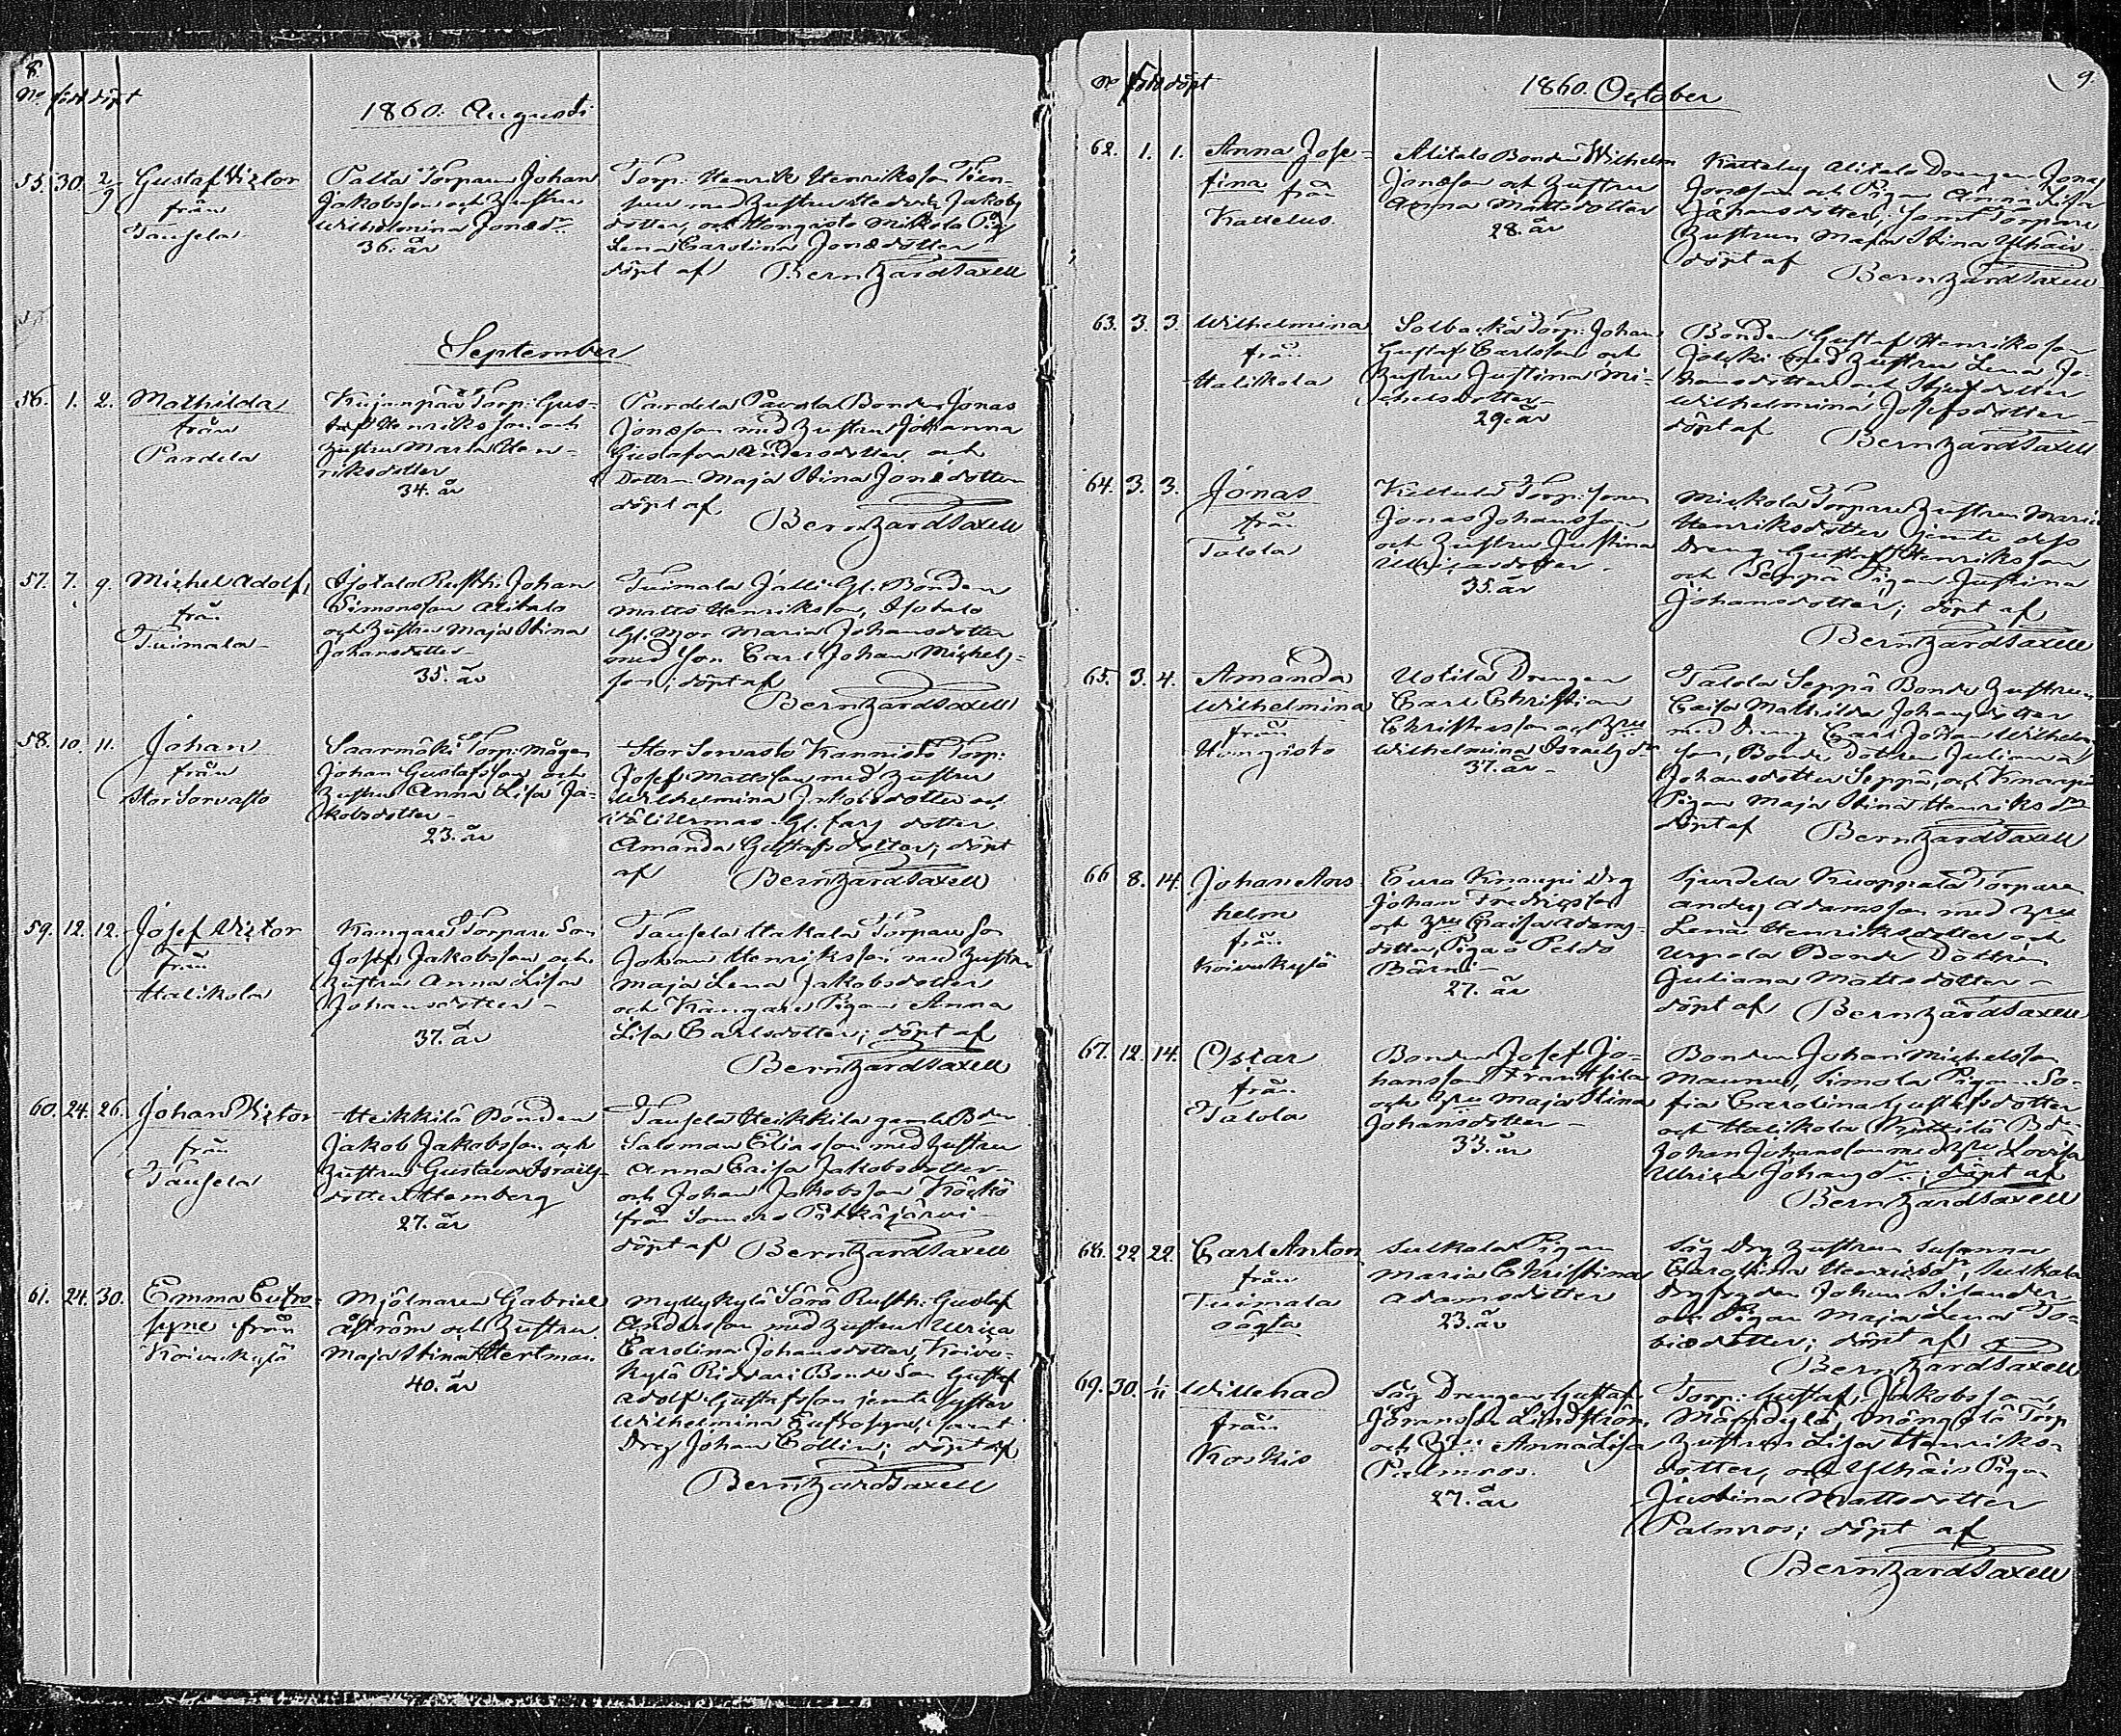 8.
No född döpt
1860. Augusti
55. 30. 2/9 Gustaf Victor
från
Taufsela
Palta Torparen Johan
Jakobsson och Hustrun
Wilhelmina Jonæd:r
36. år
Torp: Henrik Henriksson
med Hustrun Hedvig Jakobs
dotter, och Hongisto Mikola Pig
Lena Carolina Jonædotter
döpt af Bernhard Saxell
September
56. 1. 2. Mathilda
från
Pardela
Kujanpää Torp: Gus-
taf Henriksson och
Hustrun Maria Hen-
riksdotter
34. år
Pardela Bonden Jonas
Jonæson med Hustrun Johanna
Gustafva Andersdotter och
Dottren Maja Stina Jonædotter
döpt af
Bernhard Saxell
57. 7. 9. Michel Adolf
från
Tuimala
Isotalo Rusth: Johan
Simonsson Alitalo
och Hustrun Maja Stina
Johansdotter
35. år
Tuimala Jalli Gl. Bonden
Matts Henriksson, Isotalo
Gl. Mor Maria Johansdotter
med Son Carl Johan Michels-
son; döpt af
Bernhard Saxell
58. 10. 11. Johan
från
Stor Sorvasto
Saarmäki Torp: Mågen
Johan Gustafsson och
Hustrun Anna Lisa Ja-
kobsdotter
23. år
Stor Sorvasto Kannisto Torp:
Josef Mattsson med Hustrun
Wilhelmina Jakobsdotter och
Gl. fars dotter
Amanda Gustafsdotter; döpt
af Bernhard Saxell
59. 12. 12. Josef Victor
från
Halikola
Kangare Torpare Son
Josef Jakobsson och
Hustrun Anna Lisa
Johansdotter
37. år
Taufsela Hakala Torpare So
Johan Henriksson med Hustrun
Maja Lena Jakobsdotter
och Kangare Pigan Anna
Lisa Carlsdotter; döpt af
Bernhard Saxell
60. 24. 26. Johan Victor
från
Taufsela
Heikkilä Bonden
Jakob Jakobsson och
Hustrun Gustava Israels-
dotter Hamberg
27. år
Taufsela Heikkila gamle Bden
Salomon Eliasson med Hustrun
Anna Caisa Jakobsdotter
och Johan Jakobsson Köckö
från Somero Pitkäjärvi
döpt af Bernhard Saxell
61. 24. 30. Emma Eufro-
syne från
Koivukylä
Mjölnaren Gabriel
Åström och Hustrun
Maja Stina Hertman
40. år
Myllykylä Särö Rusth: Gustaf
Andersson med Hustrun Ulrica
Carolina Johansdotter, Koivu-
kylä Riddari Bonde Son Gustaf
Adolf Gustafsson jemte Syster
Wilhelmina Eufrosyne, samt
Drg Johan Collin; döpt af
Bernhard Saxell
9.
No född döpt
1860. October
62. 1. 1. Anna Jose-
fina från
Kattelus
Alitalo Bonden Wilhelm
Jonæson och Hustrun
Anna Mattsdotter
28. år
Kattelus Alitalo Drengen Jonas
Jonæson och Pigan Anna Lisa
Johansdotter, samt Torpare
Hustrun Maja Stina Ylhäis
döpt af Bernhard Saxell
63. 3. 3. Wilhelmina
från
Halikola
Solbacka Torp: Johan
Gustaf Carlsson och
Hustrun Justina Mi-
chelsdotter
29. år
Bonden Gustaf Henriksson
med Hustrun Lena Jo-
hansdotter och
Wilhelmina Josefsdotter
döpt af Bernhard Saxell
64. 3. 3. Jonas
från
Talola
Torp: Sonen
Jonas Johansson
och Hustrun Justina
Ulricasdotter
35. år
Mickola Torpare Hustrun Maria
Henriksdotter jemte dess
Dreng Gustaf Henriksson
och Seppä Pigan Justina
Johansdotter; döpt af
Bernhard Saxell
65. 3. 4. Amanda
Wilhelmina
från
Hongisto
Uotila Drengen
Carl Christian
Christersson och Hru
Wilhelmina Israelsd:r
37. år
Talola Seppä Bonde Hustrun
Caisa Mathilda Johansdotter
med Dreng Carl Johan Wilhelms
son, Bonde Dottren Juliana
Johansdotter Seppä, och Knaapi
Pigan Maja Stina Henriksd:r
döpt af Bernhard Saxell
66 8. 14. Johan Ans-
helm
från
Koivukylä
Eura Knaapi Drg
Johan Fredricsson
och Hru Caisa Adams-
dotter, Piga å Peldo
Bärni
27. år
Sjurdela Kuoppala Torparen
Anders Adamsson med Hru
Lena Henriksdotter och
Urpola Bonde Dottren
Juliana Mattsdotter
döpt af Bernhard Saxell
67. 12. 14. Oscar
från
Talola
Bonden Josef Jo-
hansson Frantsila
och Hru Maja Stina
Johansdotter
33. år
Bonden Johan Michelsson
Maunu, Simola Pigan So-
fia Carolina Gustafsdotter
och Halikola Bde
Johan Johansson med Hru Lovisa
Ulrica Johansd:r; döpt af
Bernhard Saxell
68. 22 22. Carl Anton
från
Tuimala
oägta
Sulkala Pigan
Maria Christina
Adamsdotter
23. år
Såg Drg Hustrun Susanna
Carolina Henricsd:r, Sulkala
Johan Silander
och Pigan Maja Lena To-
biædotter; döpt af
Bernhard Saxell
69. 30. 1/11 Willehad
från
Koskis
Såg Drengen Gustaf
Göransson Lindström
och Hu: Anna Lisa
Palmroos.
27. år
Torp: Gustaf Jakobsson
Torp
Hustrun Lisa Henriks-
dotter, och Ylhäis Pigan
Justina Mattsdotter
Palmroos; döpt af
Bernhard Saxell